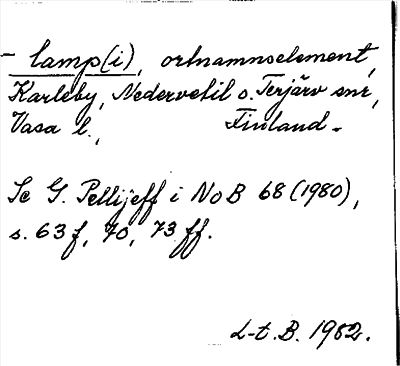 - lamp(i), ortnamnselement,
Karleby, Nedervetil o. Terjärv snr,
Vasa l., Finland.
Se G. Pellijeff i NoB 68 (1980),
s. 63 f, 70, 73 ff.
L-t. B. 1982.